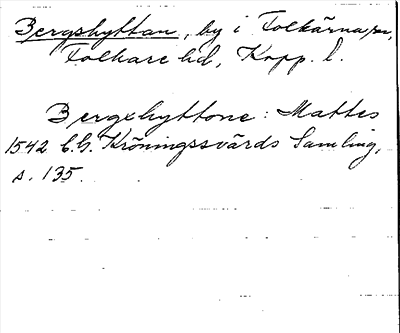 Bergshyttan, by i Folkärna sn,
Folkare hd, Kopp. l.
Bergxhyttone: Mattes
1542 C.G. Kröningssvärds Samling,
s. 135.